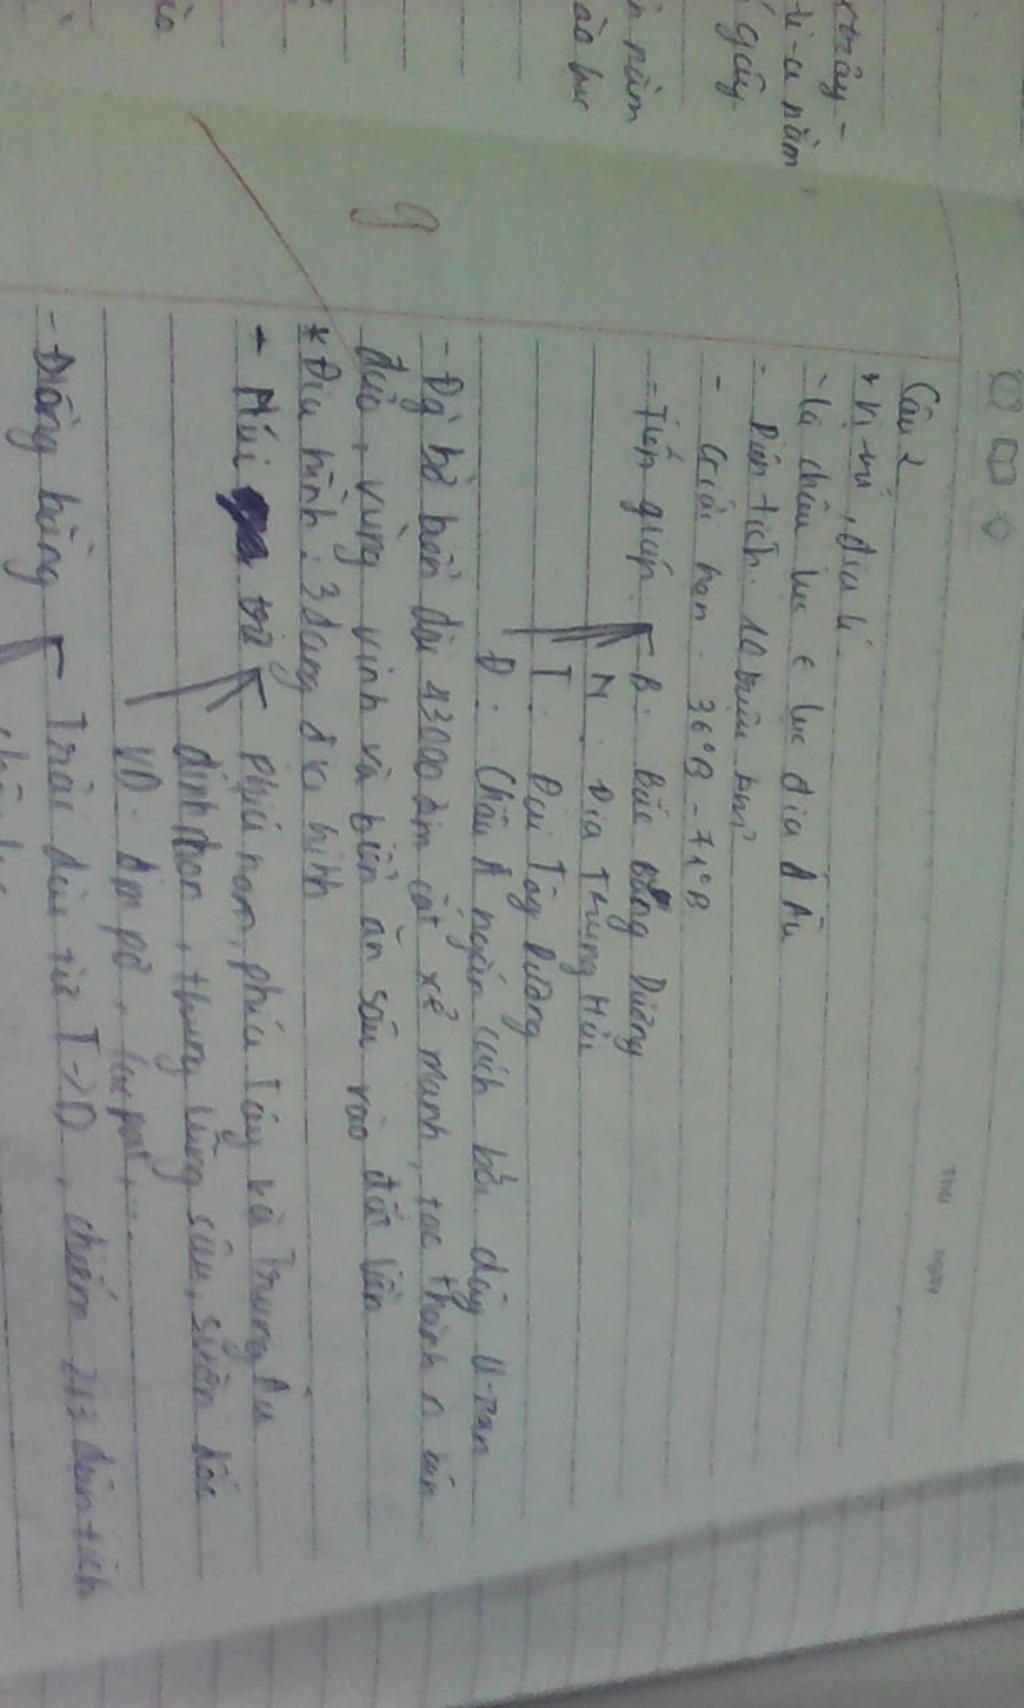 Thứ ngày
Câu 2
* Vị trí, địa lí
- là châu lục ∈ lục địa Á Âu
- Diện tích. 10 triệu km²
- Giới hạn. 36°B - 71°B
- Tiếp giáp. B. Bắc Băng Dương
N. Địa Trung Hải
T. Đại Tây Dương
Đ. Châu Á ngăn cách bởi dãy U-ran
- Đg bờ biển dài 43000 km cắt xẻ mạnh, tạo thành n bán
đảo, vũng vịnh và biển ăn sâu vào đất liền
* Địa hình: 3 dạng địa hình
- Núi trẻ phía nam, phía Tây và Trung Âu
đỉnh nhọn, thung lũng sâu, sườn dốc
VD.
- Đồng bằng Trải dài từ T->Đ, chiếm 2/3 diện tích
n nằm
gây